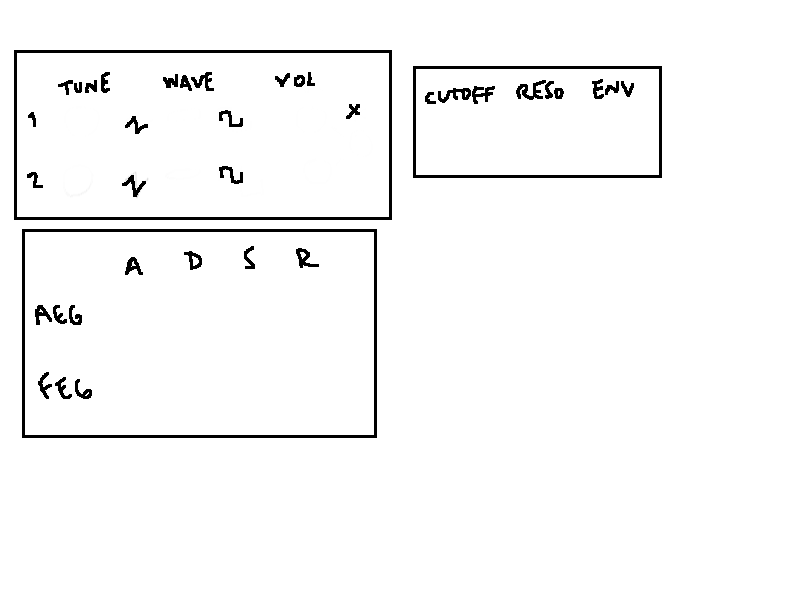 TUNE WAVE VOL
1 X
2
CUTOFF RESO ENV
A D S R
AEG
FEG